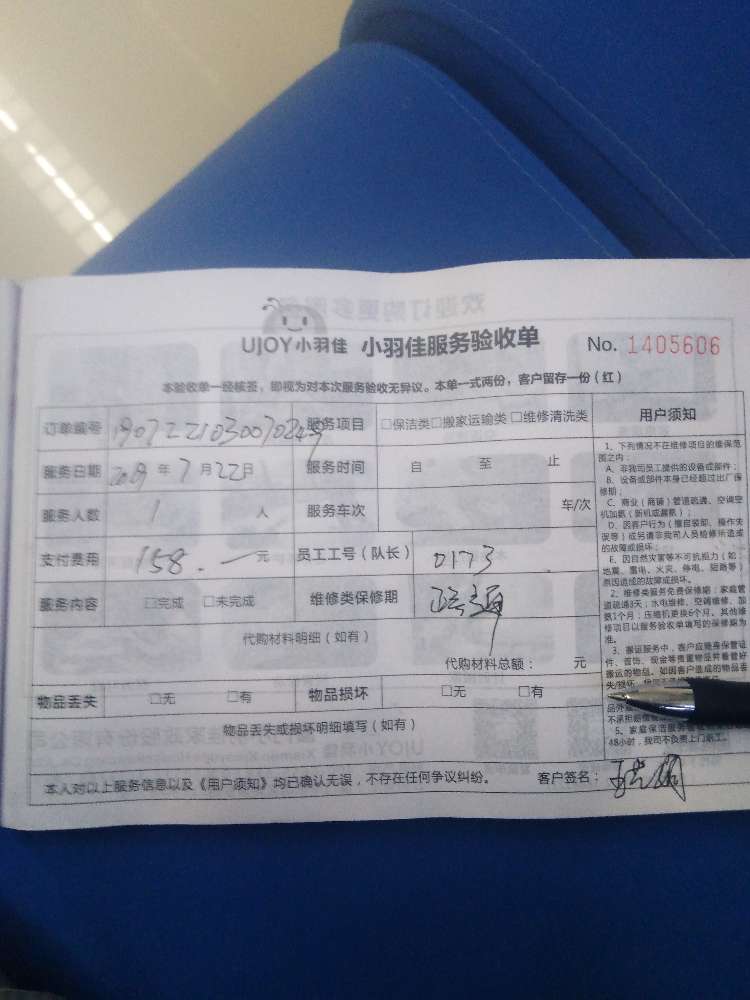 UJOY小羽佳 小羽佳服务验收单 No. 1405606
本验收单一经核签，即视为对本次服务验收无异议。本单一式两份，客户留存一份（红）
订单编号 服务项目 □保洁类□搬家运输类□维修清洗类
服务日期 2019年7月22日 服务时间 自 至 止
服务人数 1 人 服务车次 车/次
支付费用 158.一元 员工工号（队长） 0173
服务内容 □完成 □未完成 维修类保修期
代购材料明细（如有）
代购材料总额： 元
物品丢失 □无 □有 物品损坏 □无 □有
物品丢失或损坏明细填写（如有）
本人对以上服务信息以及《用户须知》均已确认无误，不存在任何争议纠纷。 客户签名：
用户须知
1、下列情况不在维修项目的维保范
围之内：
A、非我司员工提供的设备或部件；
B、设备或部件本身已经超过出厂保
修期；
C、商业（商铺）管道疏通、空调空
机加氨（新机或漏氨）；
D、因客户行为（擅自装卸、操作失
误等）或另请非我司人员检修所造成
的故障或损坏；
E、因自然灾害等不可抗拒力（如：
地震、雷电、火灾、停电、短路等）
原因造成的故障或损坏。
2、维修类服务免费保修期：家庭管
道疏通3天；水电维修、空调维修、加
氨1个月；压缩机更换6个月。其他维
修项目以服务验收单填写的保修期为
准。
3、搬运服务中，客户应随身保管证
件、首饰、现金等贵重物品并看管好
搬运的物品。如因客户造成的物品丢
失/损坏，
品外
不承担赔偿
5、家庭保洁服务
48小时，我司不负责上门返工。